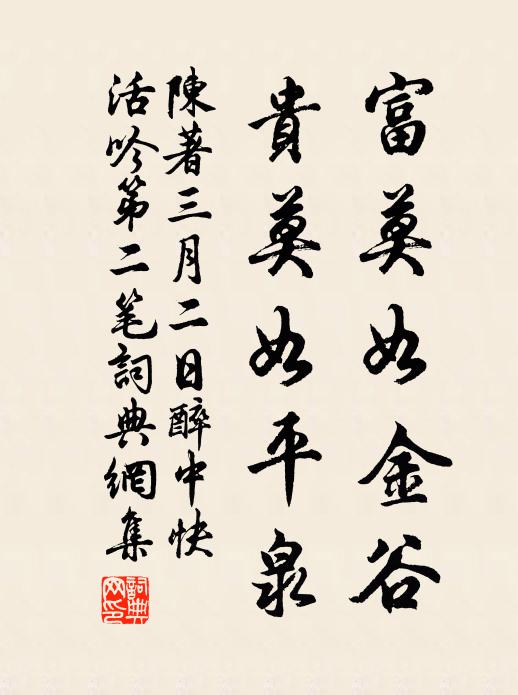 富莫如金谷
貴莫如平泉
陳著三月二日醉中快
活吟第二笔詞典網集
詞典網印